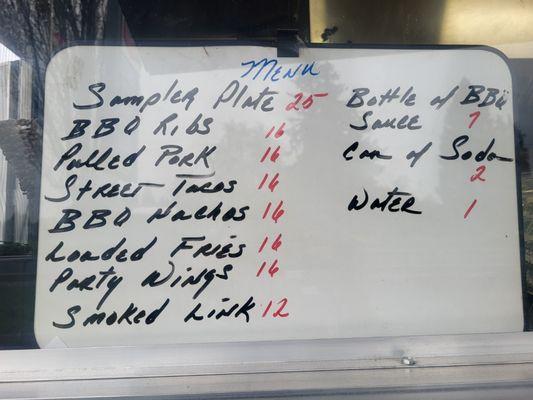 Menu
Sampler Plate 25
BBQ Ribs 16
Pulled Pork 16
Street Tacos 16
BBQ Nachos 16
Loaded Fries 16
Party Wings 16
Smoked Link 12
Bottle of BBQ
Sauce 7
Can of Soda
2
Water 1